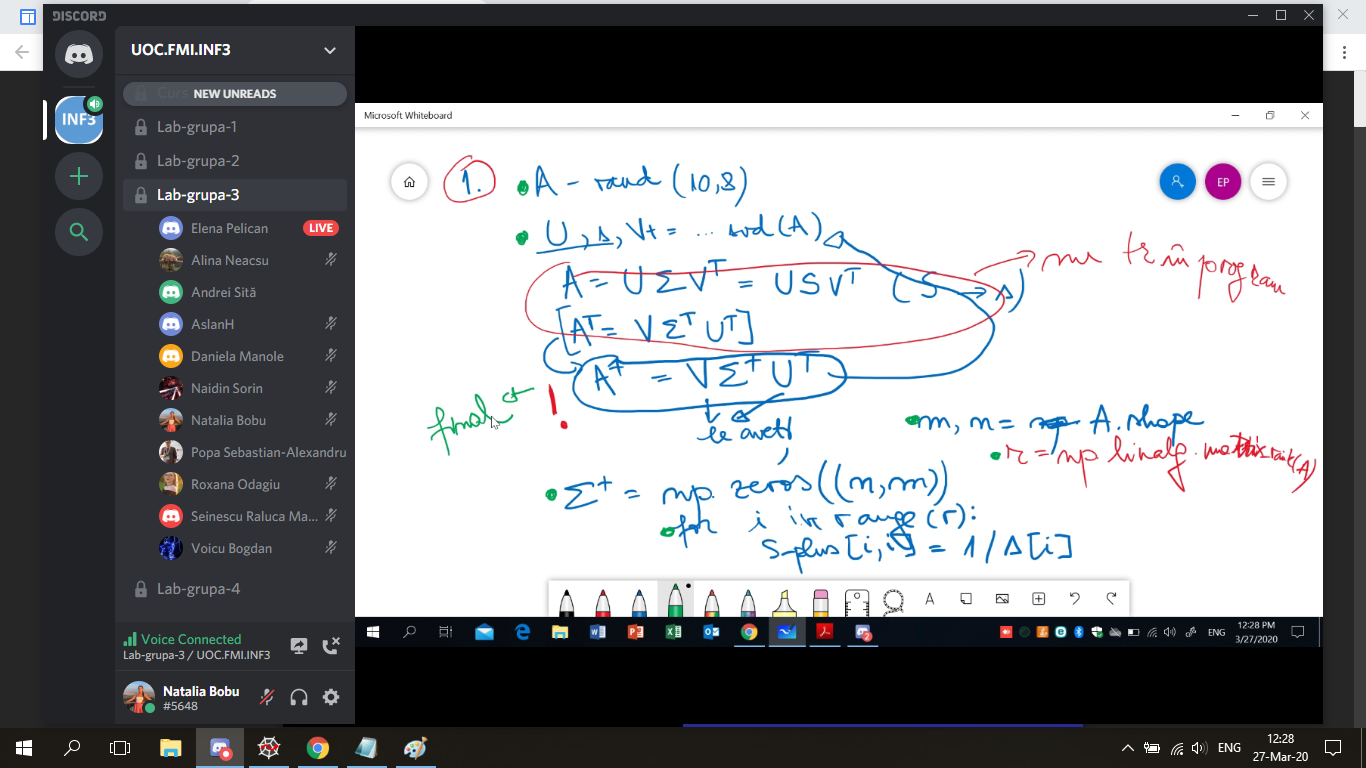 DISCORD
UOC.FMI.INF3
NEW UNREADS
INF3
Lab-grupa-1
Lab-grupa-2
Lab-grupa-3
Elena Pelican LIVE
Alina Neacsu
Andrei Sită
AslanH
Daniela Manole
Naidin Sorin
Natalia Bobu
Popa Sebastian-Alexandru
Roxana Odagiu
Seinescu Raluca Ma...
Voicu Bogdan
Lab-grupa-4
Voice Connected
Lab-grupa-3 / UOC.FMI.INF3
Natalia Bobu
#5648
Microsoft Whiteboard
EP
1. A - rand (10,8)
U, s, Vt = ... svd(A)
A = U Σ V^T = U S V^T (S → s)
nu tr în program
[A^T = V Σ^T U^T]
A^+ = V Σ^+ U^T
final !
le aveți
m, n = A.shape
r = np linalg.
Σ^+ = np. zeros((n,m))
for i in range(r):
S-plus[i,i] = 1/s[i]
A
ENG
12:28 PM
3/27/2020
ENG
12:28
27-Mar-20